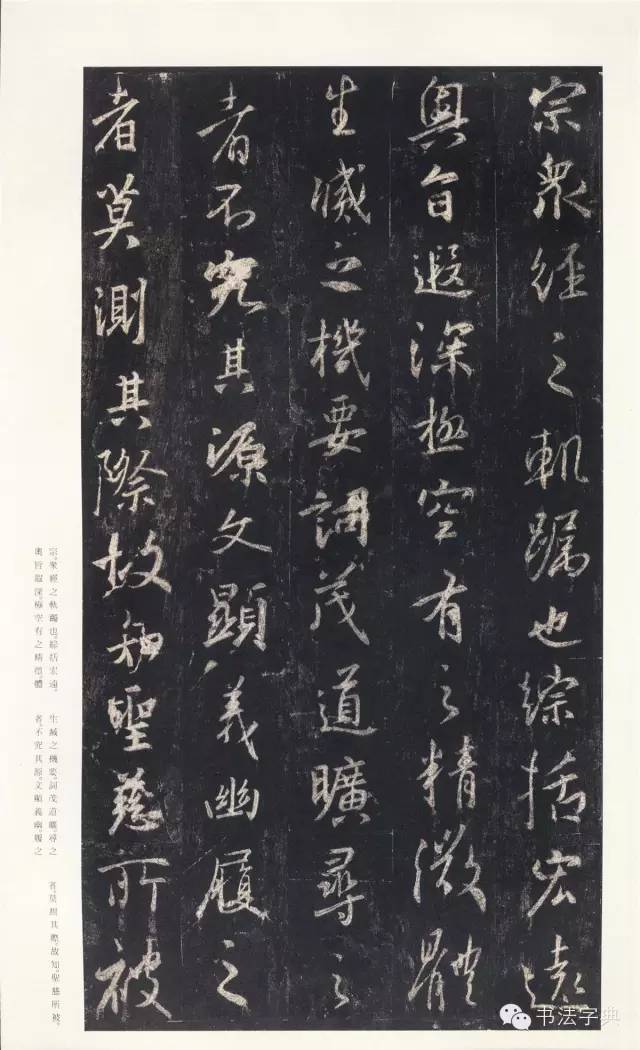 宗衆經之軌躅也綜括宏遠
奧旨遐深極空有之精微體
生滅之機要詞茂道曠尋之
者不究其源文顯義幽履之
者莫測其際故知聖慈所被
宗。衆經之軌躅也。綜括宏遠。
奧旨遐深。極空有之精微。體
生滅之機要。詞茂道曠。尋之
者。不究其源。文顯義幽。履之
者。莫測其際。故知。聖慈所被。
书法字典